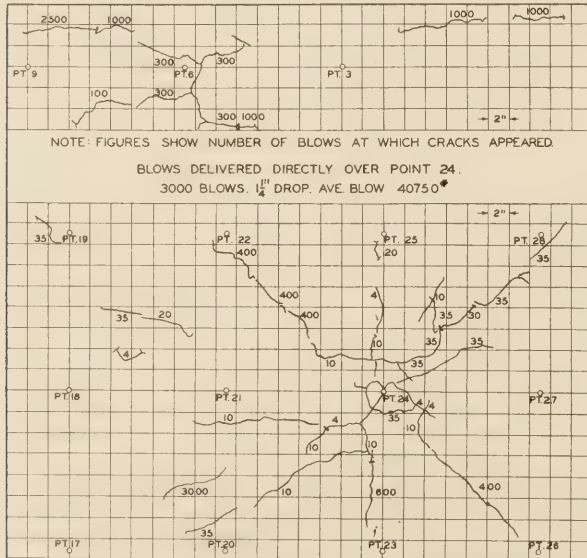 2500
1000
1000
1000
PT. 9
300
PT.6
300
PT. 3
100
300
300 1000
2"
NOTE: FIGURES SHOW NUMBER OF BLOWS AT WHICH CRACKS APPEARED.
BLOWS DELIVERED DIRECTLY OVER POINT 24.
3000 BLOWS. 1 1/4" DROP. AVE. BLOW 40750#
2"
35
PT.19
PT. 22
PT. 25
PT. 28
400
20
35
400
4
10
35
20
400
35
30
4
35
35
10
10
PT. 18
PT.21
PT.24
PT.27
10
4
35
4
4
10
10
10
3000
10
600
400
35
PT.17
PT.20
PT.23
PT.26